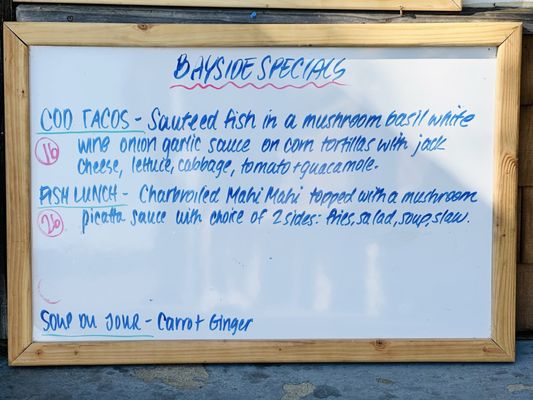 BAYSIDE SPECIALS
COD TACOS - Sauteed fish in a mushroom basil white
16 wine onion garlic sauce on corn tortillas with jack
cheese, lettuce, cabbage, tomato + guacamole.
FISH LUNCH - Charbroiled Mahi Mahi topped with a mushroom
26 picatta sauce with choice of 2 sides: fries, salad, soup, slaw.
SOUP DU JOUR - Carrot Ginger